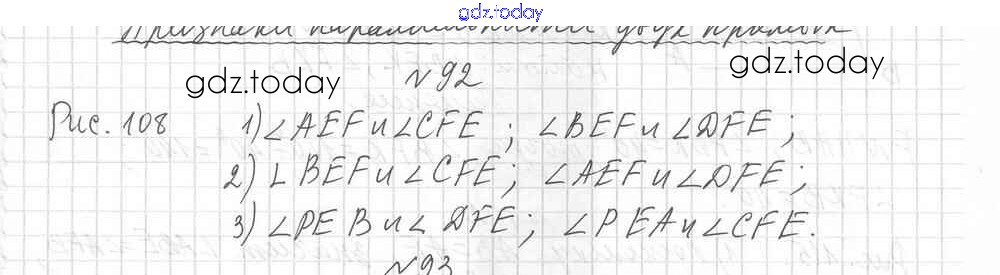 gdz.today
Признаки параллельности двух прямых
№92
gdz.today
gdz.today
Рис. 108 1) ∠AEF и ∠CFE ; ∠BEF и ∠DFE ;
2) ∠BEF и ∠CFE ; ∠AEF и ∠DFE ;
3) ∠PEB и ∠DFE ; ∠PEA и ∠CFE.
№93